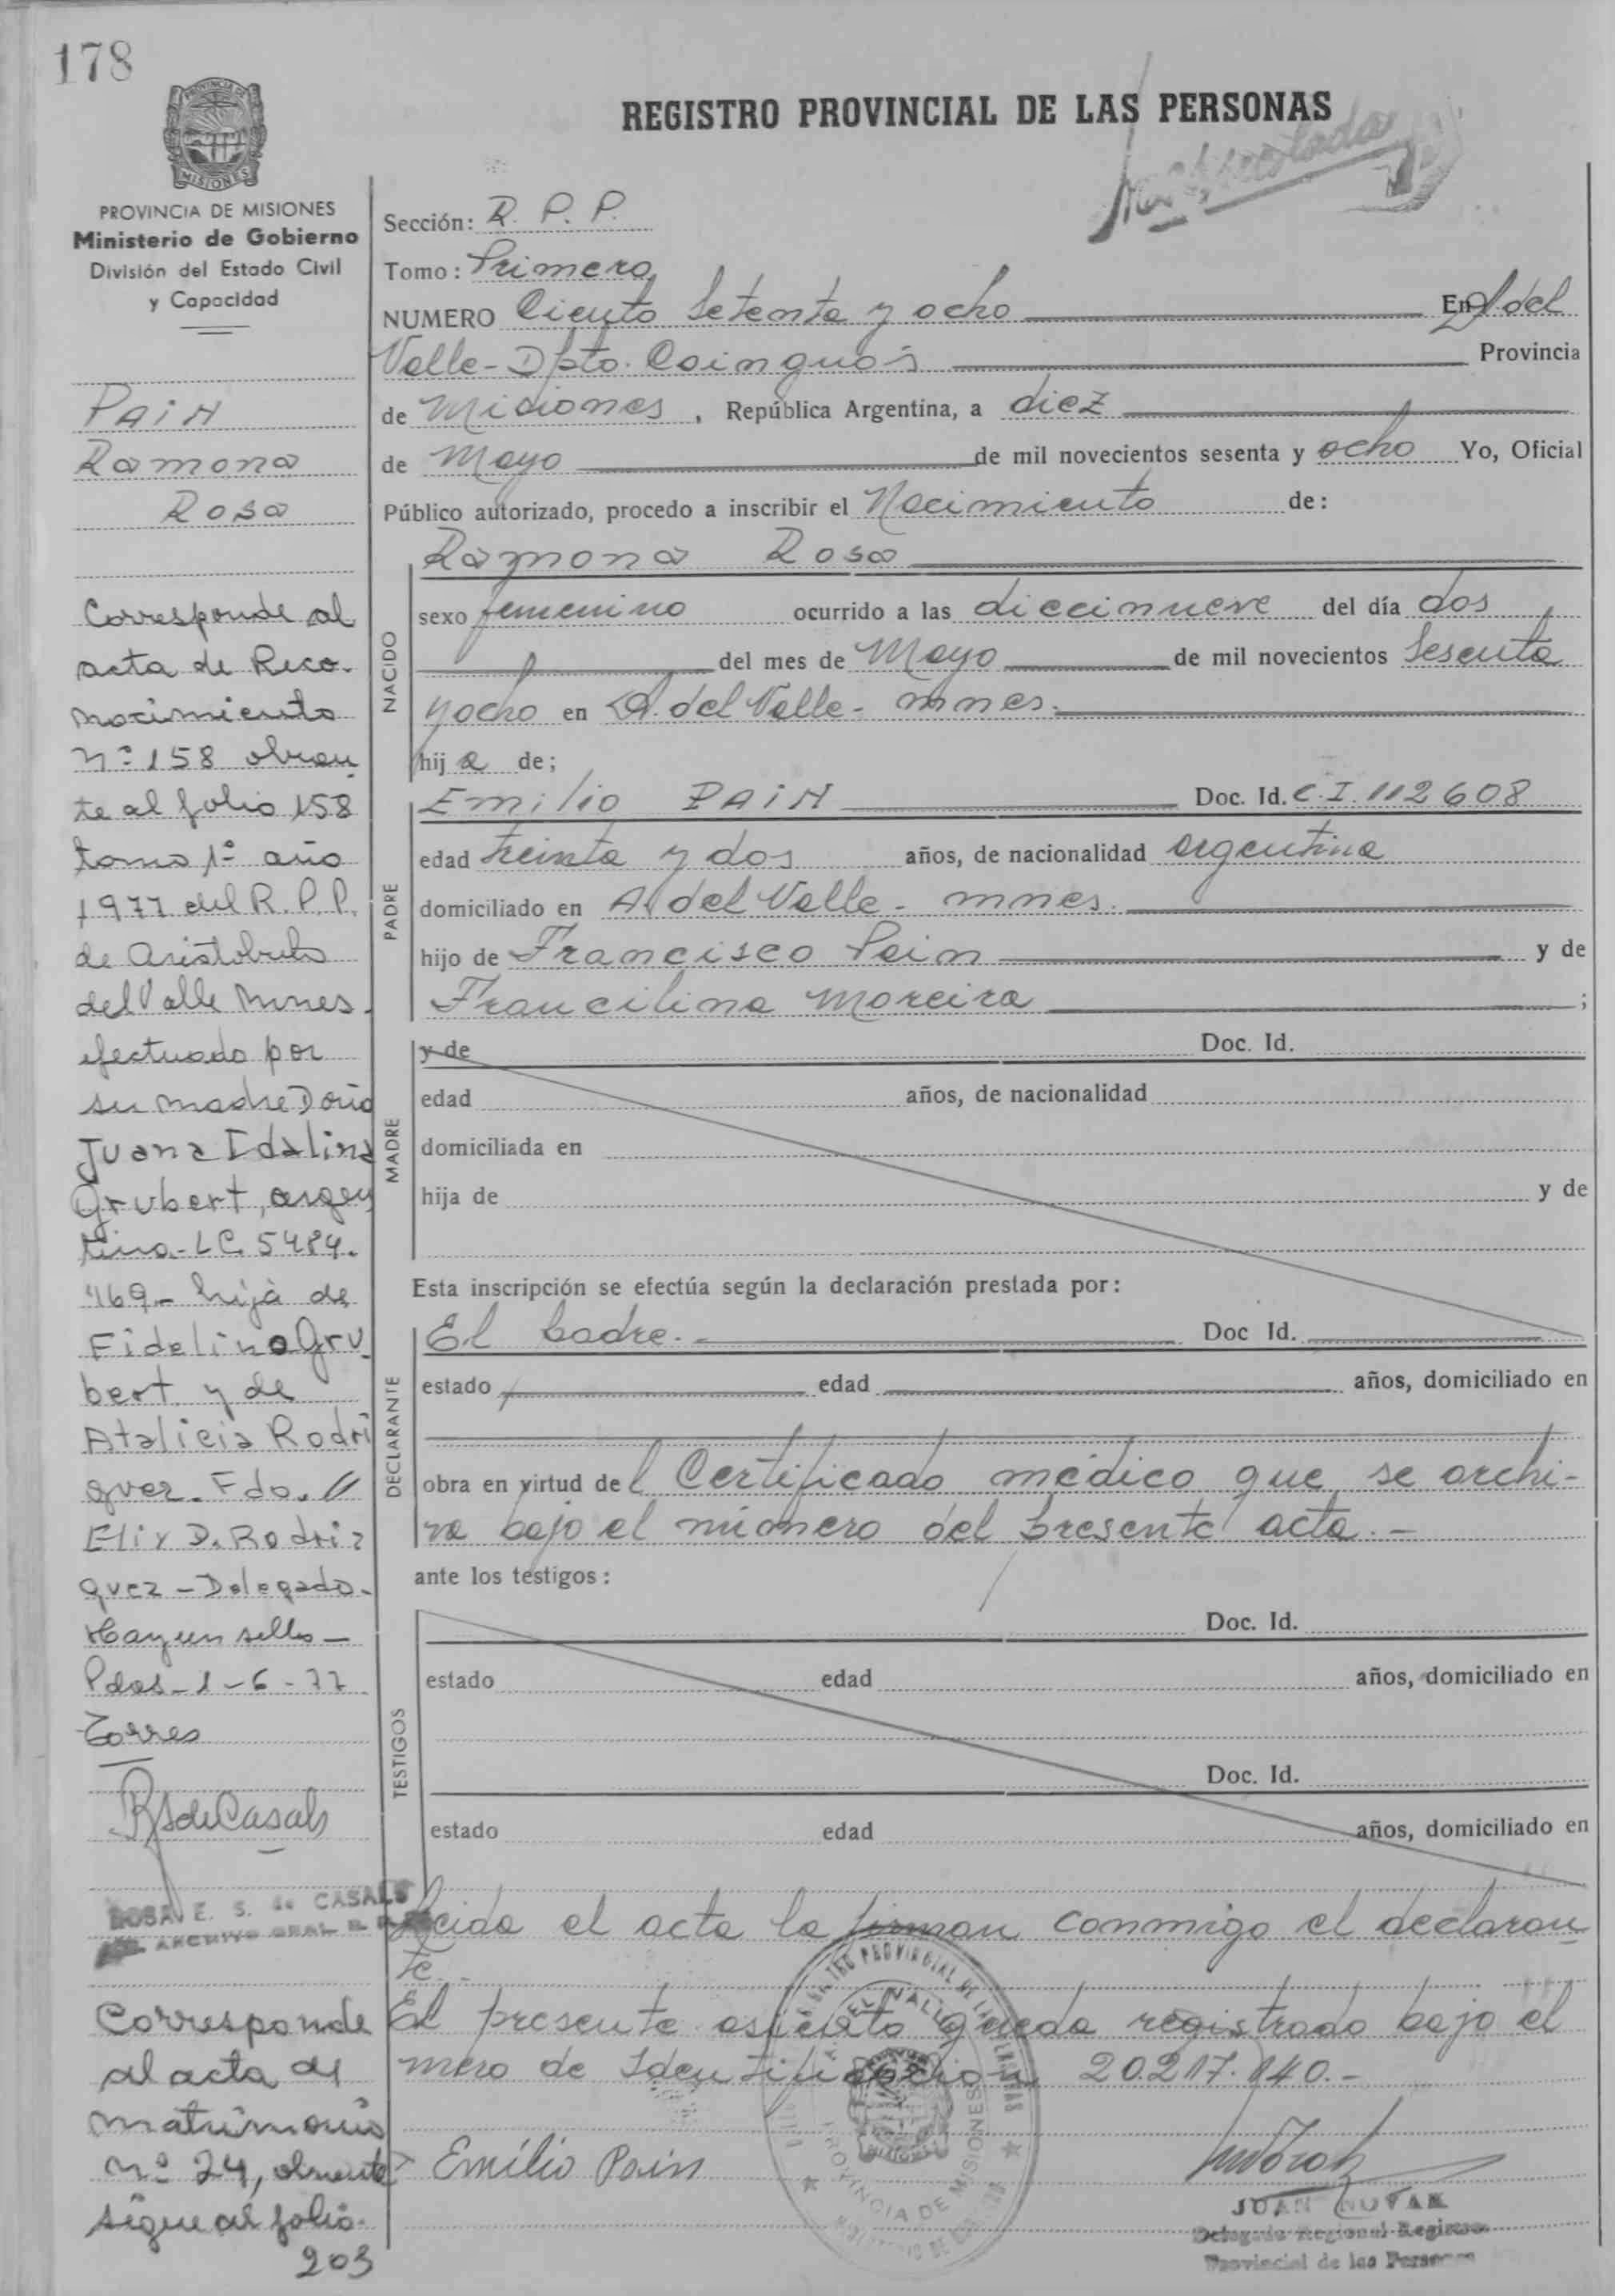 178
REGISTRO PROVINCIAL DE LAS PERSONAS
PROVINCIA DE MISIONES
Ministerio de Gobierno
División del Estado Civil
y Capacidad
Sección: R. P. P.
Tomo: Primero
NUMERO Ciento Setenta y ocho En A. del
Valle - Dpto. Cainguás Provincia
de Misiones, República Argentina, a diez
de Mayo de mil novecientos sesenta y ocho Yo, Oficial
Público autorizado, procedo a inscribir el Nacimiento de:
Ramona Rosa
NACIDO
sexo femenino ocurrido a las diecinueve del día dos
del mes de Mayo de mil novecientos Sesenta
y ocho en A. del Valle - mnes.
hij a de;
PADRE
Emilio PAIN Doc. Id. C.I. 112608
edad treinta y dos años, de nacionalidad argentina
domiciliado en A. del Valle - mnes.
hijo de Francisco Pain y de
Francilina Moreira ;
MADRE
y de Doc. Id.
edad años, de nacionalidad
domiciliada en
hija de y de
Esta inscripción se efectúa según la declaración prestada por:
DECLARANTE
El padre. - Doc Id.
estado edad años, domiciliado en
obra en virtud del Certificado médico que se archi-
va bajo el número del presente acta. -
ante los testigos:
TESTIGOS
Doc. Id.
estado edad años, domiciliado en
Doc. Id.
estado edad años, domiciliado en
Leida el acta la firman conmigo el declaran
te. -
El presente asiento queda registrado bajo el
mero de Identificación 20.217.140. -
Emilio Pain
JUAN NOVAK
Delegado Regional Registro
Provincial de las Personas
PAIN
Ramona
Rosa
Corresponde al
acta de Reco-
nocimiento
Nº 158 obran
te al folio 158
tomo 1º año
1977 del R. P. P.
de Aristobulo
del Valle Mnes.
efectuado por
su madre Doña
Juana Idalina
Grubert, argen
tina - LC. 5484.
469 - hija de
Fidelino Gru
bert y de
Atalicia Rodri
guez. Fdo. //
Elix D. Rodri
guez - Delegado -
Hay un sello -
Pdas - 1 - 6 - 77
Torres
R S de Casals
ROSA E. S. de CASALS
ARCHIVO GRAL
Corresponde
al acta de
matrimonio
nº 24, obrante
sigue al folio
203